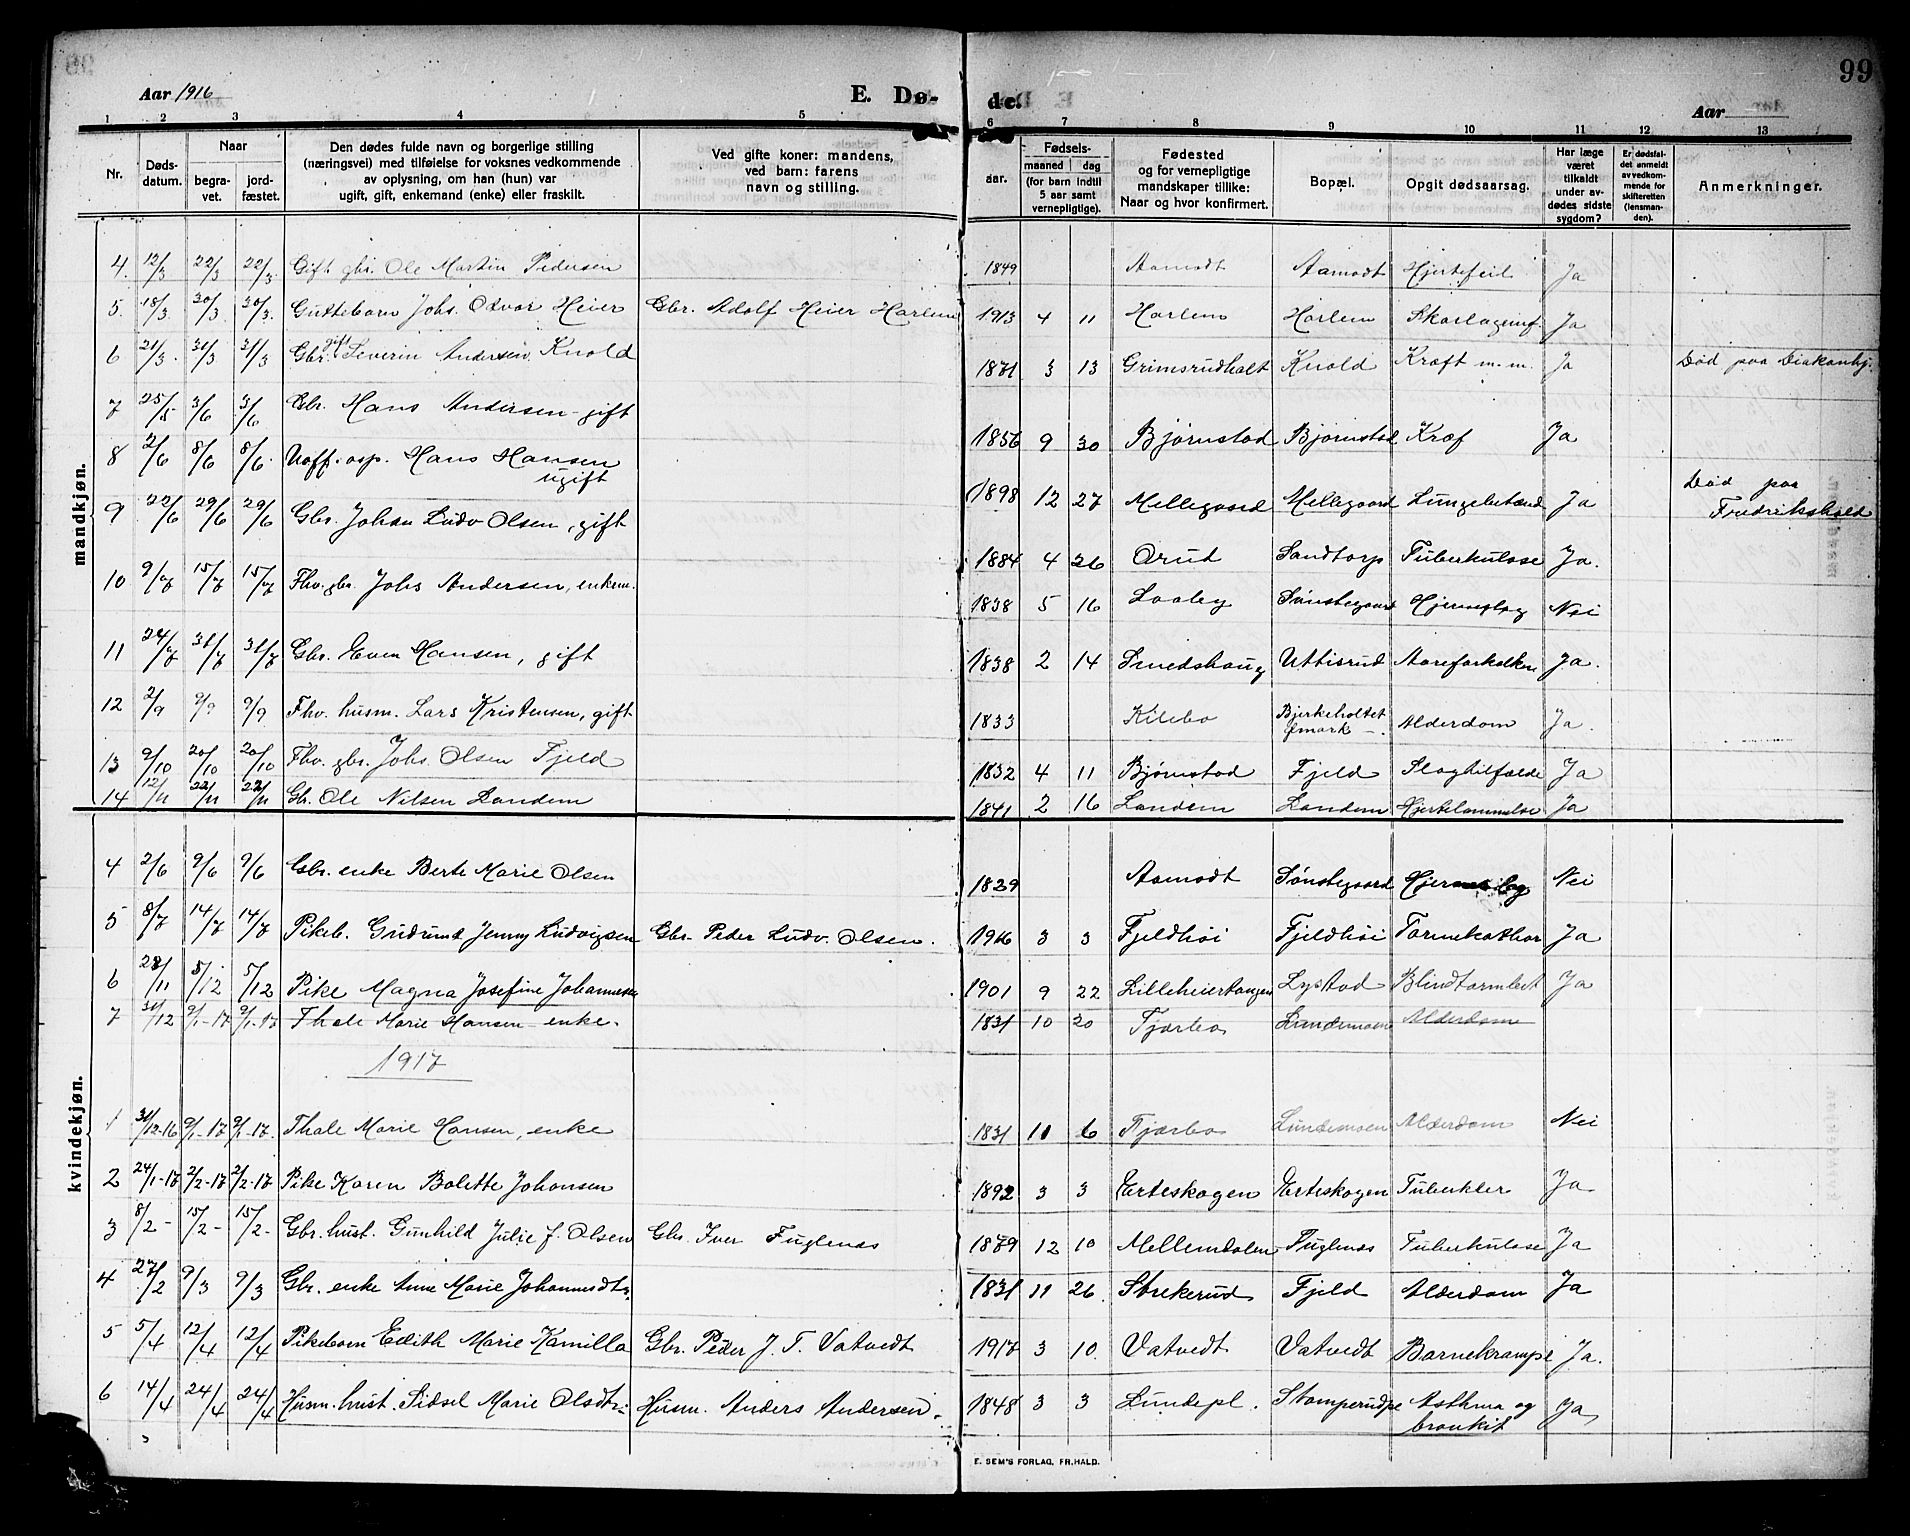 99
Aar 1916
E. Dø- de.
Aar
1 2 3 4 5 6 7 8 9 10 11 12 13
Nr.
Døds-
datum.
Naar
begra-
vet.
jord-
fæstet.
Den dødes fulde navn og borgerlige stilling
(næringsvei) med tilføielse for voksnes vedkommende
av oplysning, om han (hun) var
ugift, gift, enkemand (enke) eller fraskilt.
Ved gifte koner: mandens,
ved barn: farens
navn og stilling.
Fødsels-
aar.
maaned dag
(for barn indtil
5 aar samt
vernepligtige).
Fødested
og for vernepligtige
mandskaper tillike:
Naar og hvor konfirmert.
Bopæl.
Opgit dødsaarsag.
Har læge
været
tilkaldt
under av-
dødes sidste
sygdom?
Er dødsfal-
det anmeldt
av vedkom-
mende for
skifteretten
(lensman-
den).
Anmerkninger.
mandkjøn.
4 12/3 22/3 22/3 Gift gbr. Ole Martin Pedersen 1849 Aamodt Aamodt Hjertefeil Ja
5 18/3 30/3 30/3 Guttebarn Johs. Odvar Heier Gbr. Adolf Heier Harlem 1913 4 11 Harlem Harlem Skarlagensf. Ja
6 21/3 31/3 31/3 Gbr. gift Severin Andersen Knold 1871 3 13 Grimsrudhalt Knold Kræft m.m. Ja Død paa Diakonhj.
7 25/5 3/6 3/6 Gbr. Hans Andersen - gift 1856 9 30 Bjørnstad Bjørnstad Kræf Ja
8 2/6 8/6 8/6 Uoff. asp. Hans Hansen
ugift 1898 12 27 Mellegaard Mellegaard Lungebetænd Ja Død paa
Fredrikshald
9 22/6 29/6 29/6 Gbr. Johan Ludv Olsen, gift 1884 4 26 Orud Sandtorp Tuberkulose Ja.
10 9/7 15/7 15/7 Fhv. gbr. Johs Andersen, enkem. 1838 5 16 Laaby Sønstegaard Hjerneslag Nei
11 24/7 31/7 31/7 Gbr. Even Hansen, gift 1838 2 14 Smedshaug Uttisrud Aareforkalkn Ja.
12 2/9 9/9 9/9 Fhv. husm. Lars Kristensen, gift 1833 Kilebo Bjerkeholtet
Ømark - Alderdom Ja.
13 9/10 20/10 20/10 Fhv. gbr. Johs. Olsen Fjeld 1832 4 11 Bjørnstad Fjeld Slagtilfælde Ja
14 12/11 22/11 22/11 Gbr. Ole Nilsen Landem 1841 2 16 Landem Landem Hjertelammelse Ja
kvindekjøn.
4 2/6 9/6 9/6 Gbr. enke Berte Marie Olsen 1829 Aamodt Sønstegaard Hjerneslag Nei
5 8/7 14/7 14/7 Pikeb. Gudrund Jenny Ludvigsen Gbr. Peder Ludv. Olsen. 1916 3 3 Fjeldhøi Fjeldhøi Tarmekathar Ja
6 28/11 5/12 5/12 Pike Magna Josefine Johannesen 1901 9 22 Lilleheiertangen Lystad Blindtarmbet Ja
7 31/12 9/1-17 9/1-17 Thale Marie Hansen - enke. 1831 10 20 Tjærbo Lundemoen Alderdom
1917
1 31/12-16 9/1-17 9/1-17. Thale Marie Hansen, enke 1831 11 6 Tjærbo Lundemoen Alderdom Nei
2 24/1-17 2/2-17 2/2-17 Pike Karen Bolette Johansen 1892 3 3 Erteskogen Erteskogen Tuberkler Ja
3 8/2- 15/2- 15/2- Gbr. hust. Gunhild Julie J. Olsen Gbr. Iver Fuglenæs 1879 12 10 Mellemdalen Fuglenæs Tuberkulose Ja
4 27/2 9/3 9/3 Gbr. enke Anne Marie Johannesdtr. 1831 11 26 Strekerud Fjeld Alderdom Ja
5 5/4 12/4 12/4 Pikebarn Edith Marie Kamilla Gbr. Peder J. T. Vatvedt 1917 3 10 Vatvedt Vatvedt Barnekrampe Ja.
6 14/4 24/4 24/4 Husm. hust. Sidsel Marie Olsdtr. Husm. Anders Andersen. 1848 3 3 Lundepl. Stomperudpl Asthma og
bronkit Ja
E. SEM'S FORLAG, FR.HALD.